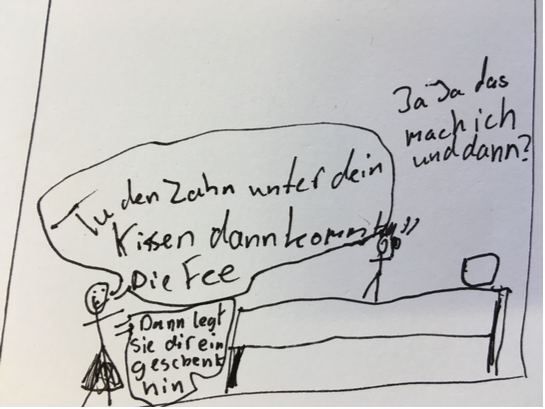 Ja Ja das
mach ich
und dann?
Tu den Zahn unter dein
Kissen dann kommt
Die Fee
Dann legt
sie dir ein
geschenk
hin